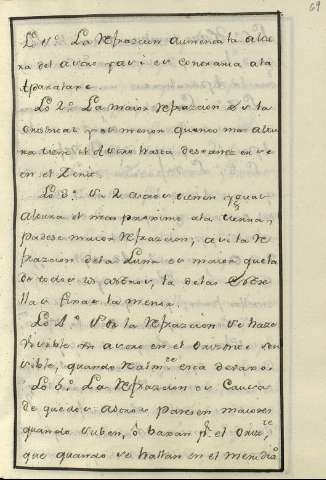 69
Lo 1º La Refraccion aumenta la altu
ra del Astro y assi es contraria a la
Paralaxe
Lo 2º La maior Refraccion es la
Orisontal y es menor quando mas altu
ra tiene el Astro hasta desvanezerse
en el Zenit.
Lo 3º Si 2 astros tienen ygual
altura el mas proximo a la tierra,
padese maior Refraccion, asi la Re
fraccion dela Luna es maior que la
de todos los astros, la delas Estre
llas fixas la menor.
Lo 4º Por la Refraccion se haze
visible un astro en el Orisonte sen
sible, quando està devaxo.
Lo 5º La Refraccion es Causa
de que los astros paresen maiores
quando suben, ò baxan pr. el Oriste
que quando se hallan en el meridno